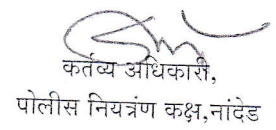 कर्तव्य अधिकारी,
पोलीस नियत्रंण कक्ष,नांदेड